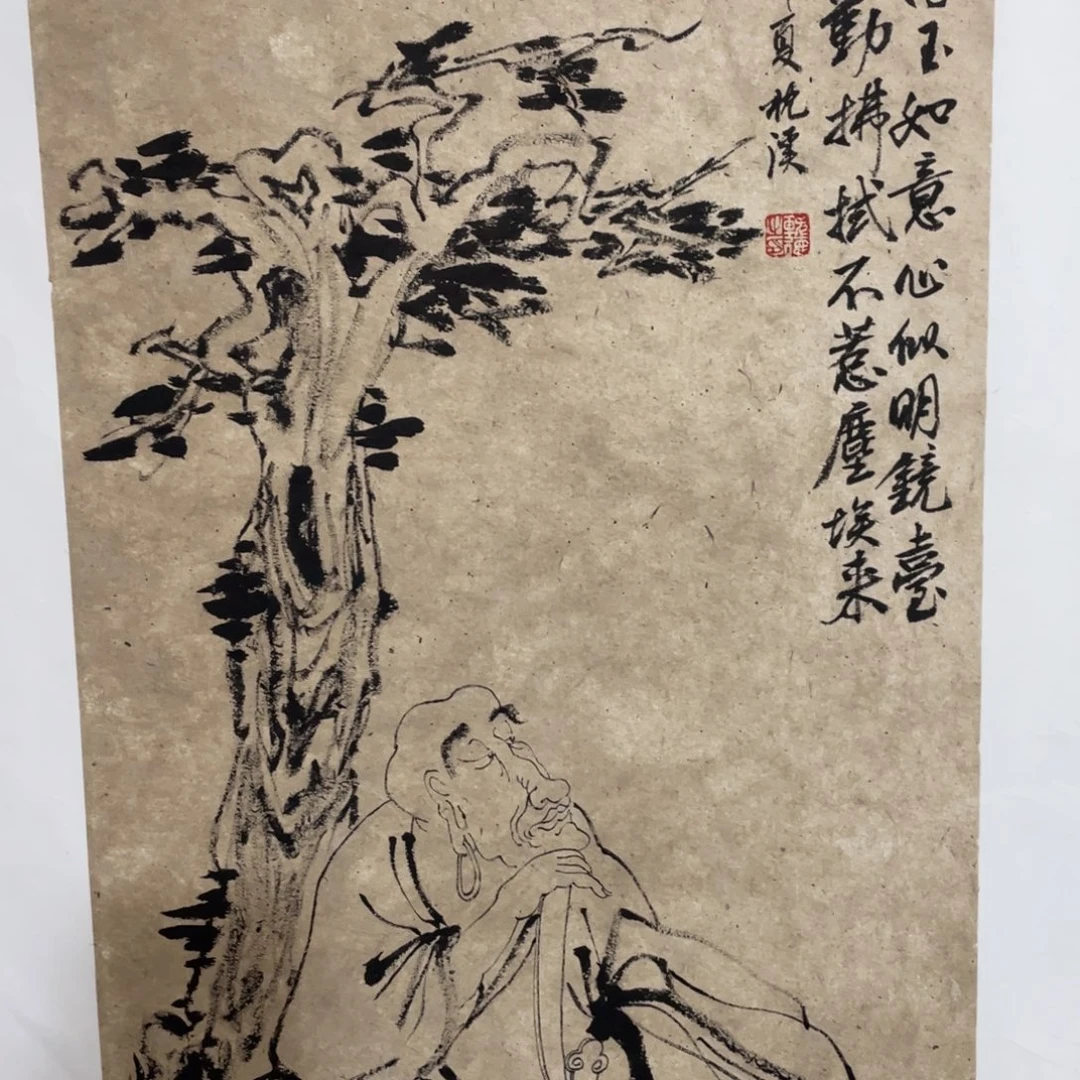 玉如意心似明鏡臺
勤拂拭不惹塵埃来
夏